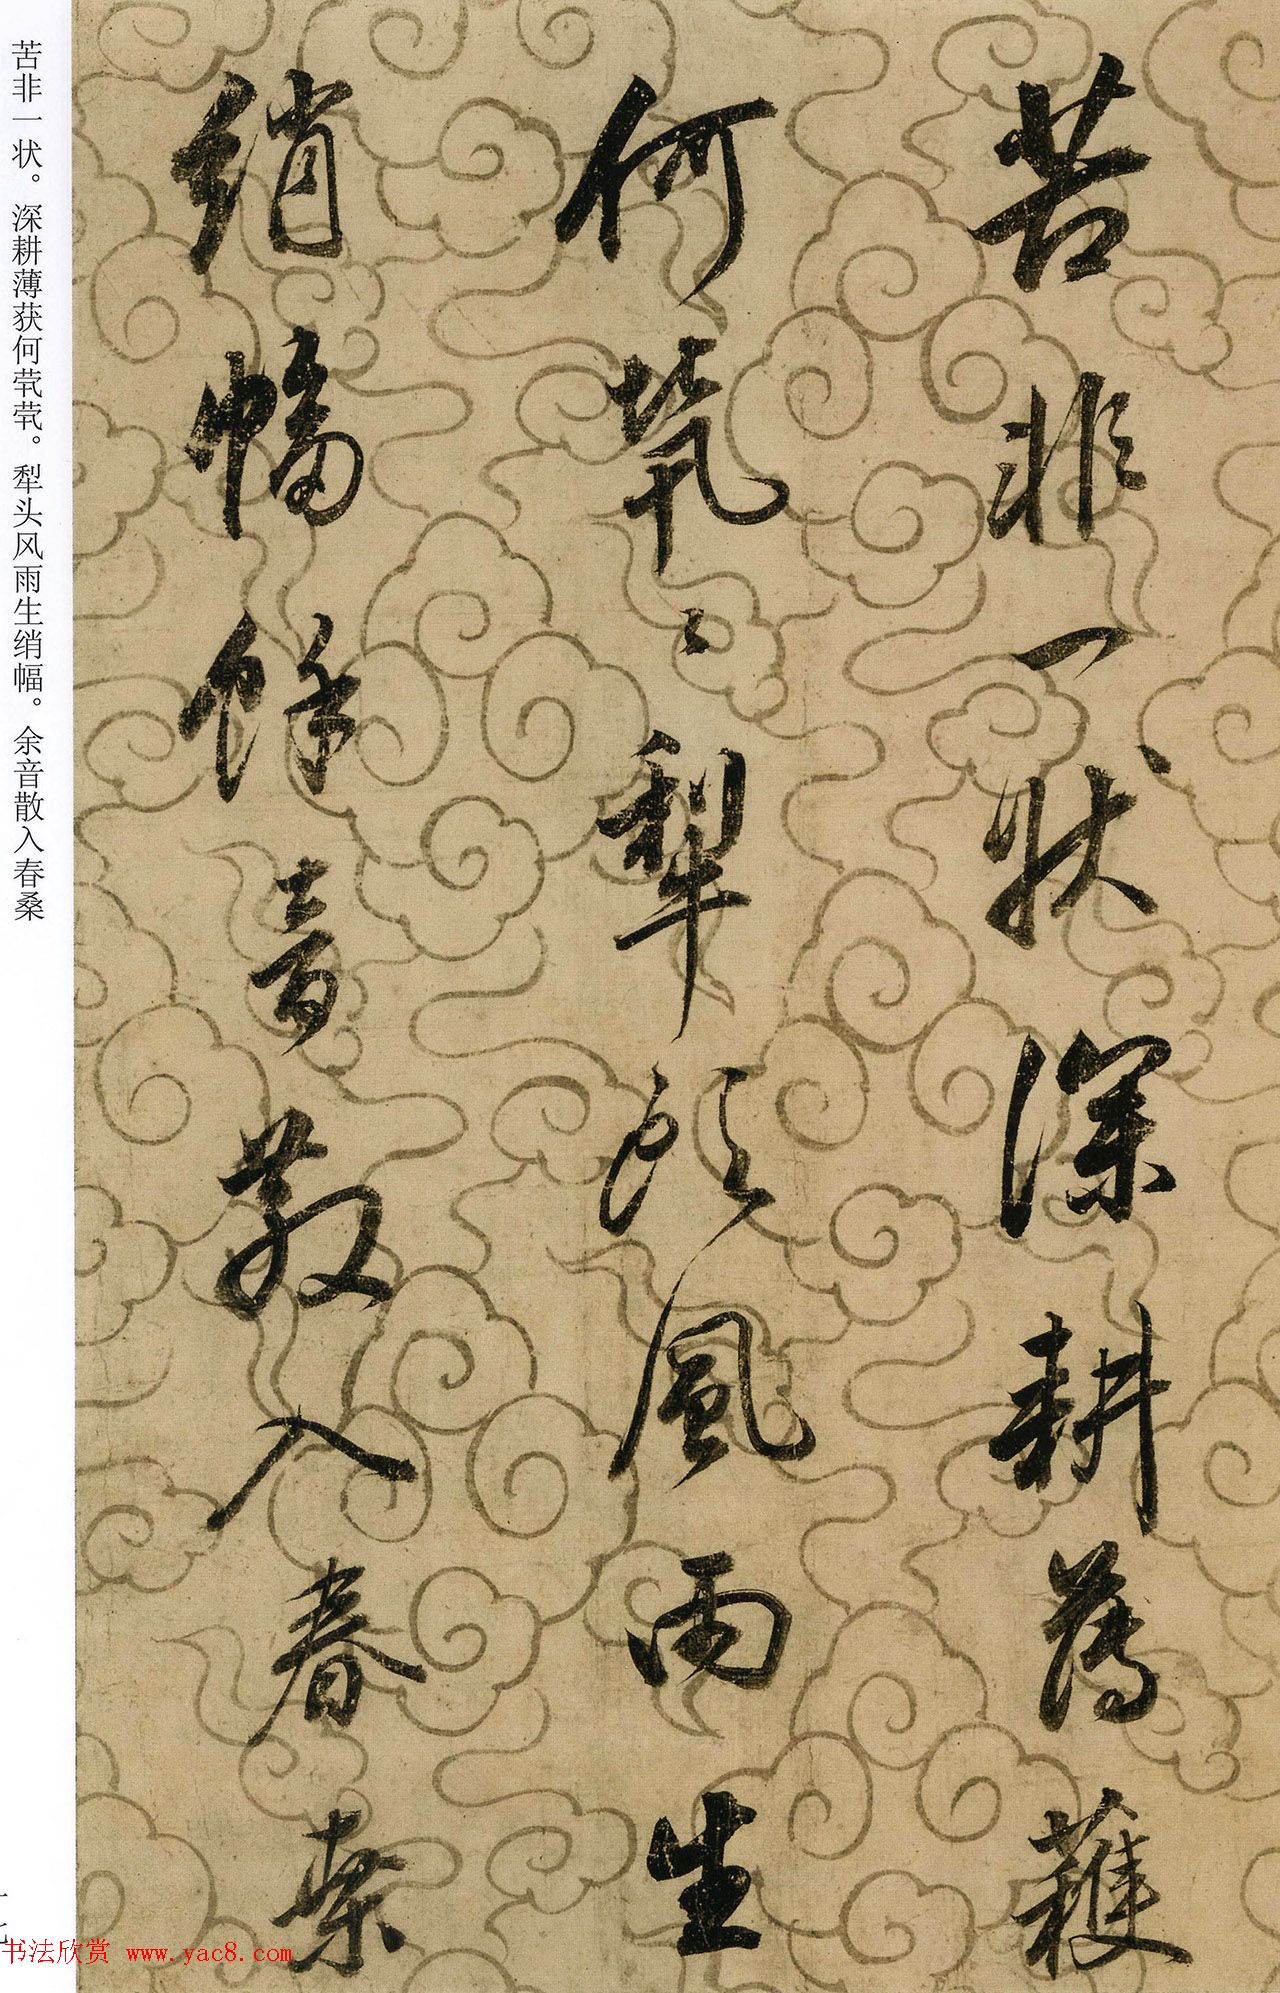 苦非一状深耕薄蓛
何茕〻犁頭風雨生
綃幅餘音散入春桑
苦非一状。深耕薄获何茕茕。犁头风雨生绡幅。余音散入春桑
十七
书法欣赏 www.yac8.com